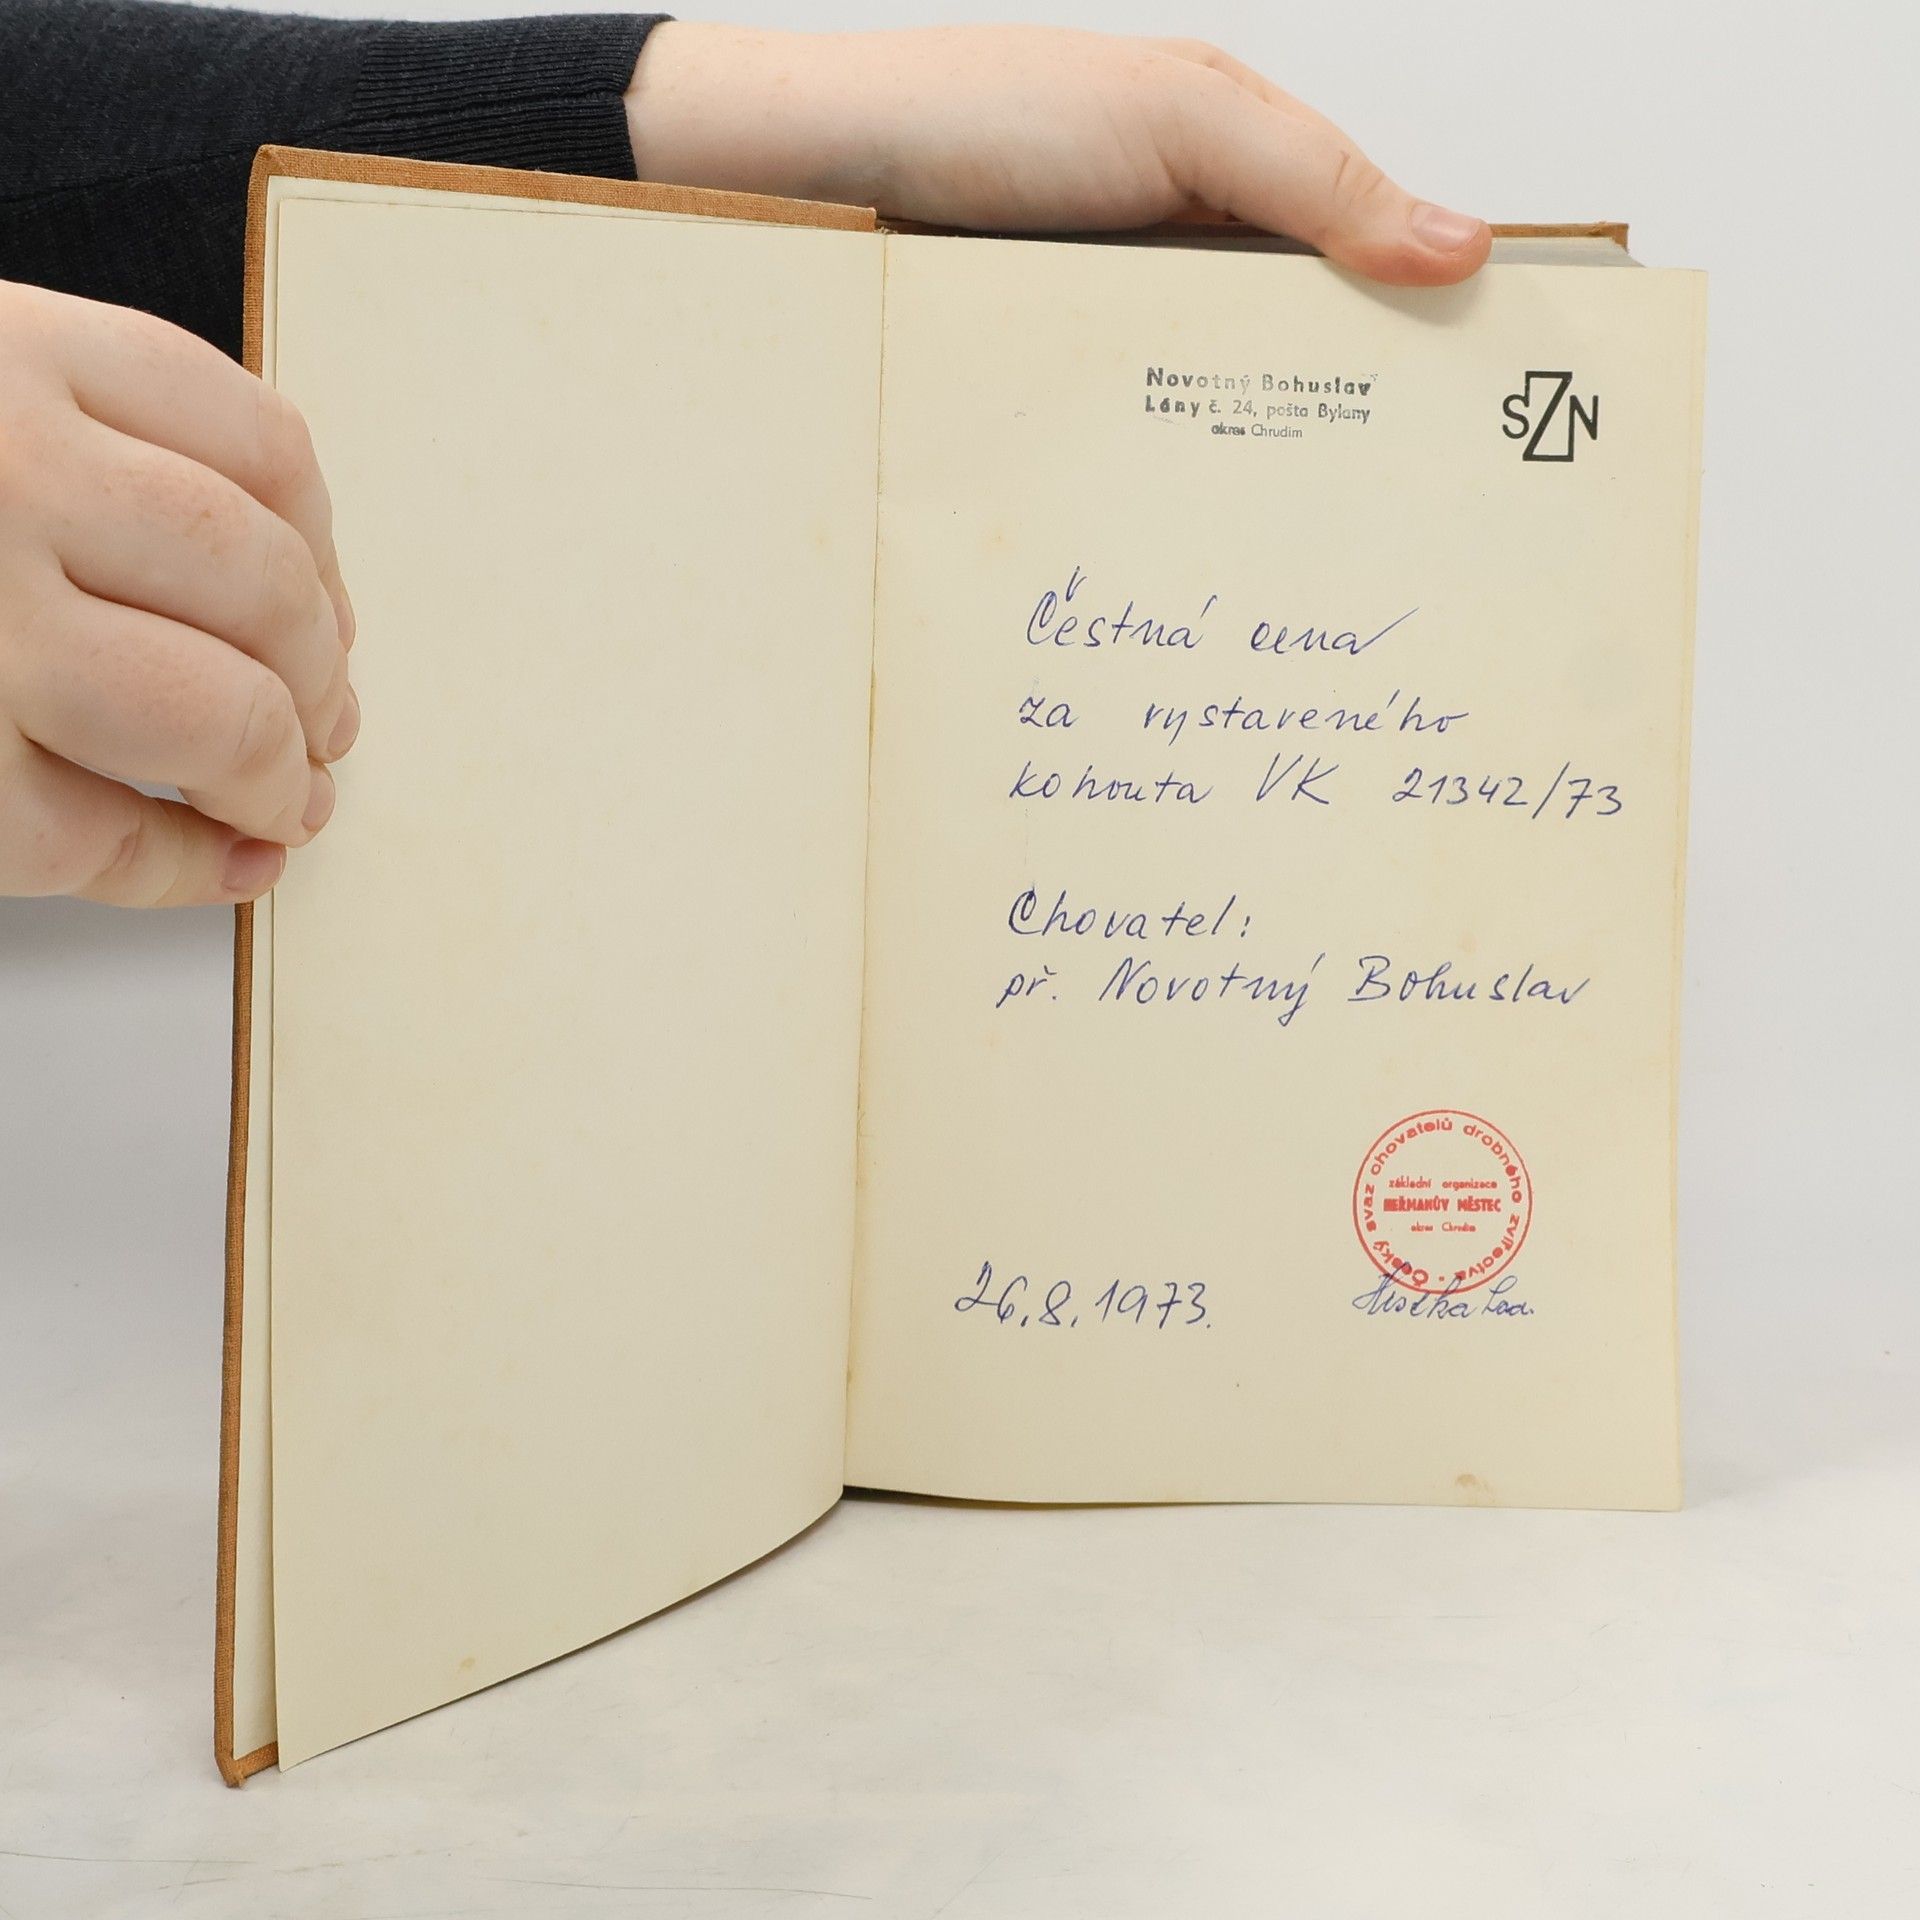 Novotný Bohuslav
Lány č. 24, pošta Bylany
okres Chrudim
SZN
Čestná cena
za vystaveného
kohouta VK 21342/73
Chovatel:
př. Novotný Bohuslav
Český svaz chovatelů drobného zvířectva
základní organizace
HEŘMANŮV MĚSTEC
okres Chrudim
26.8.1973.